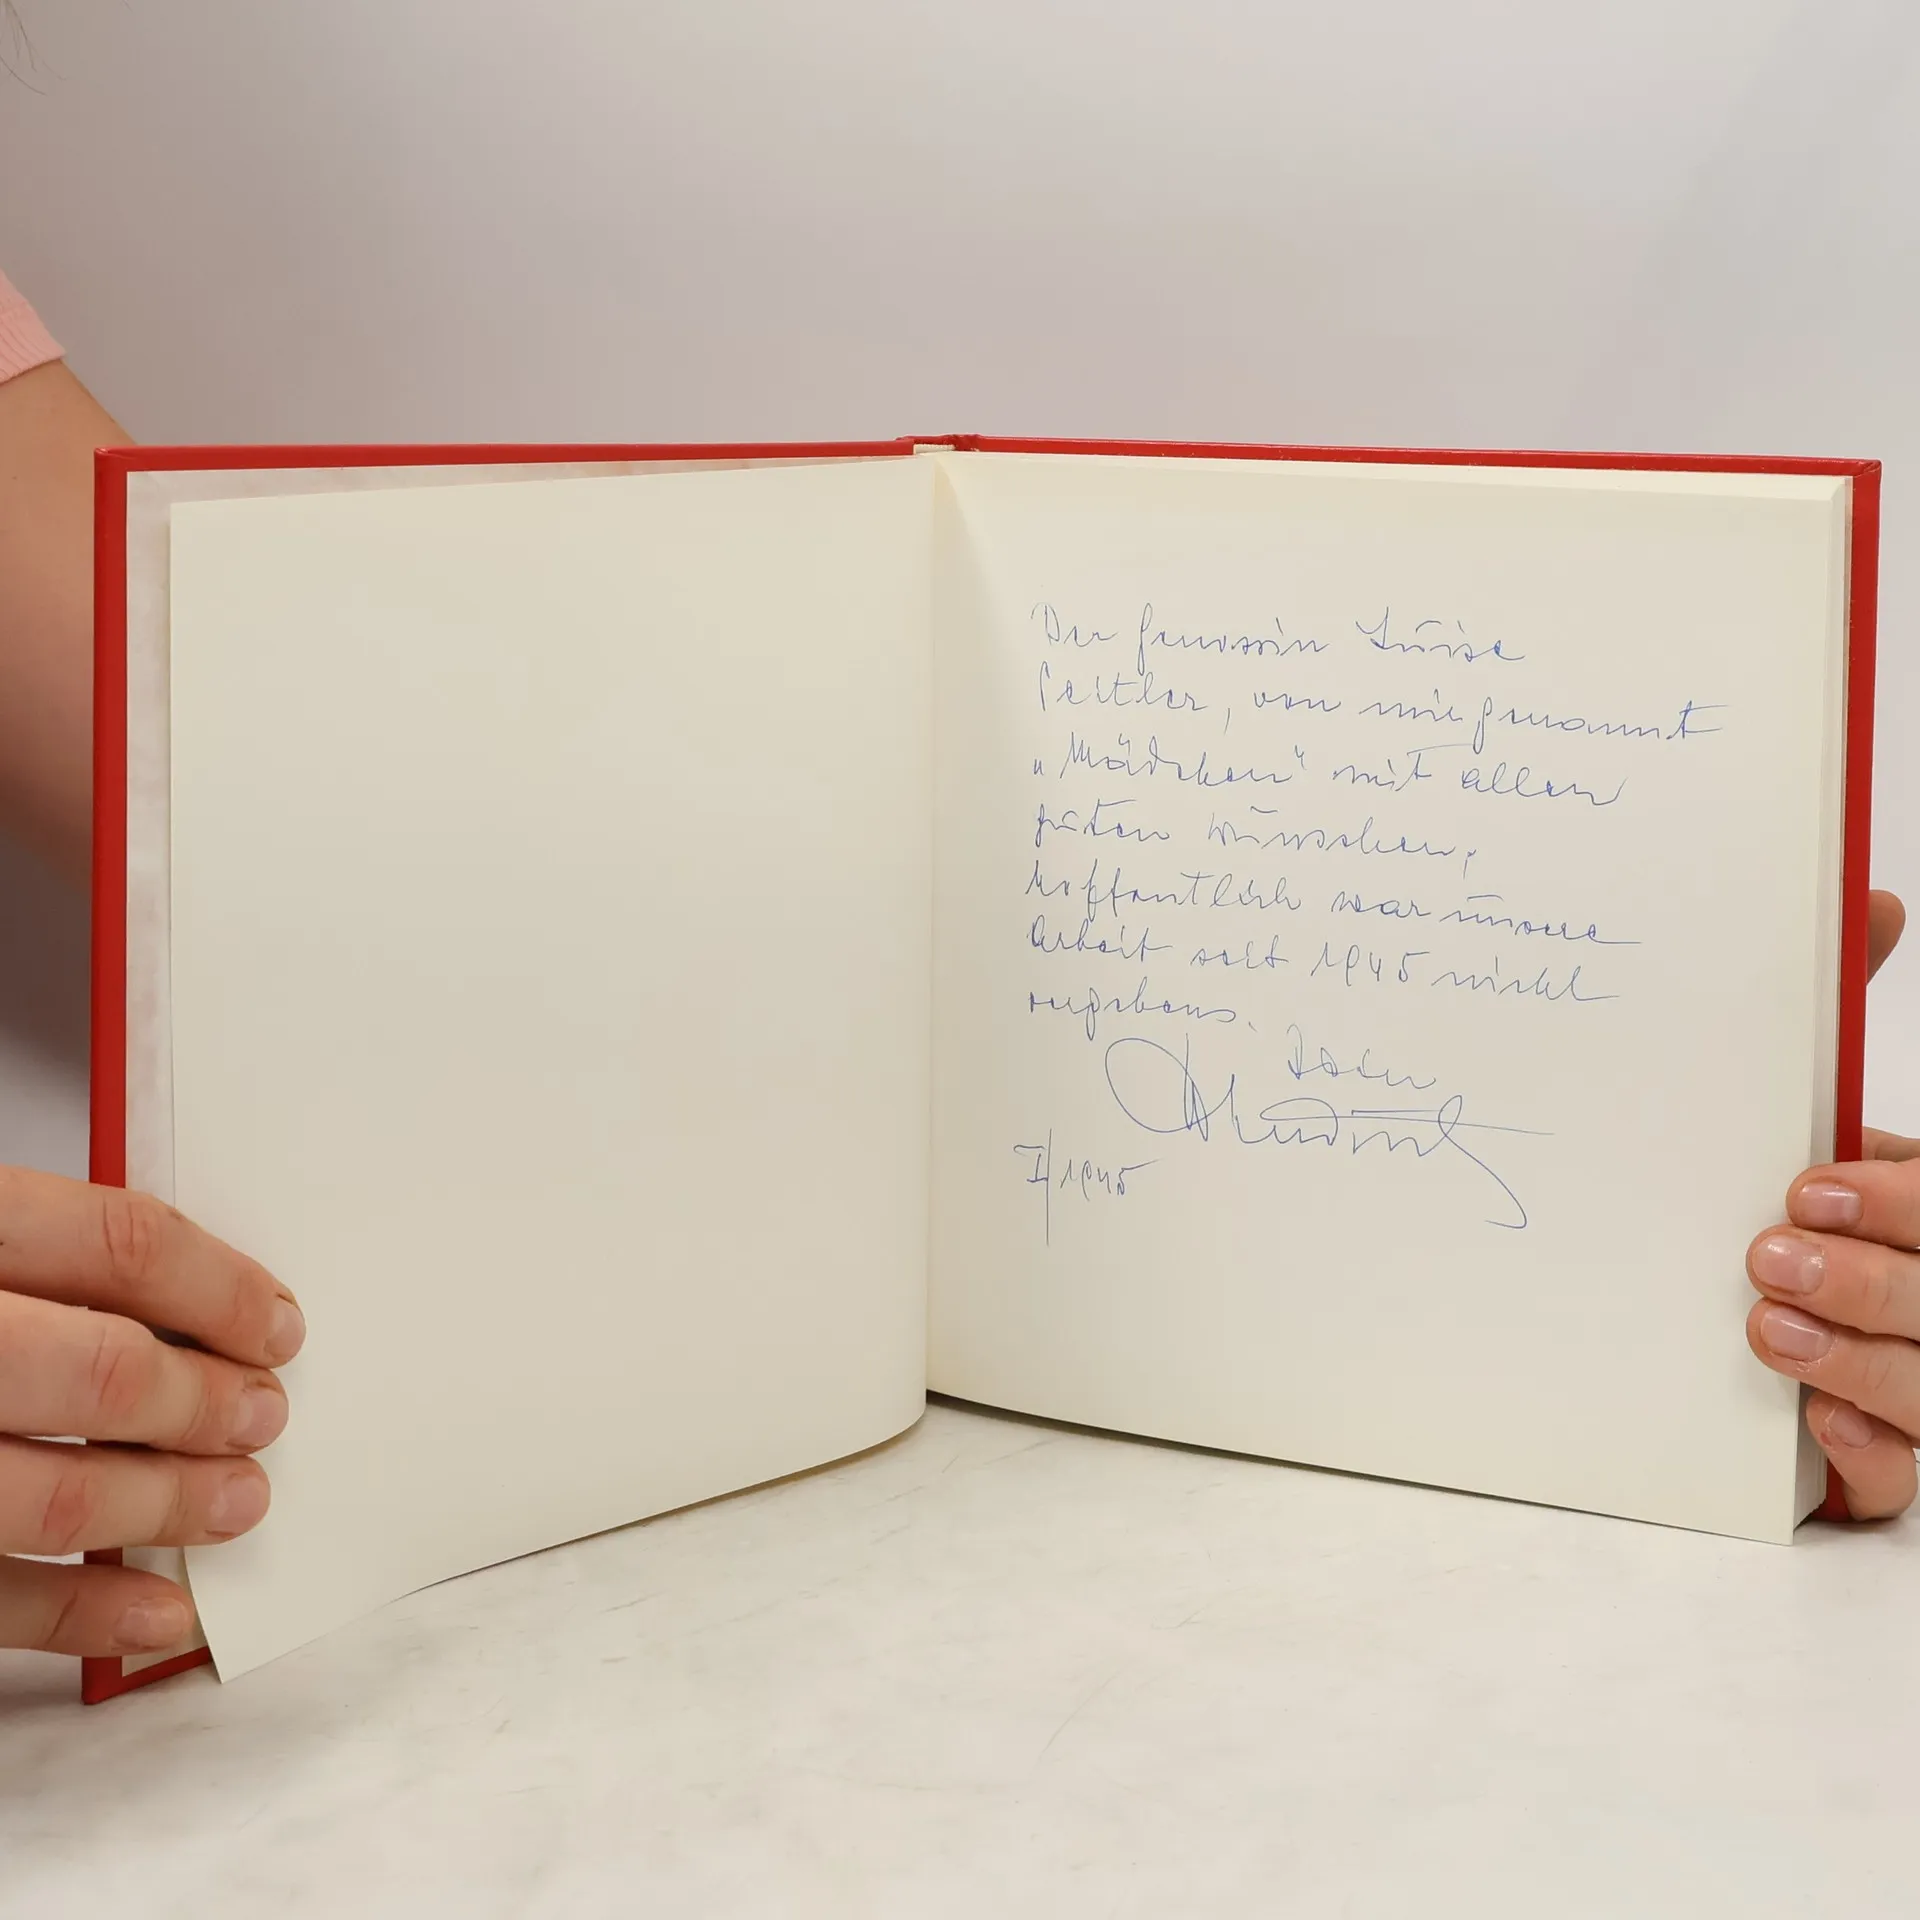 Der Genossin Luise
Peitler, von mir genannt
„Mädchen“ mit allen
guten Wünschen,
hoffentlich war unsere
Arbeit seit 1945 nicht
vergebens.
Dein
I/1945